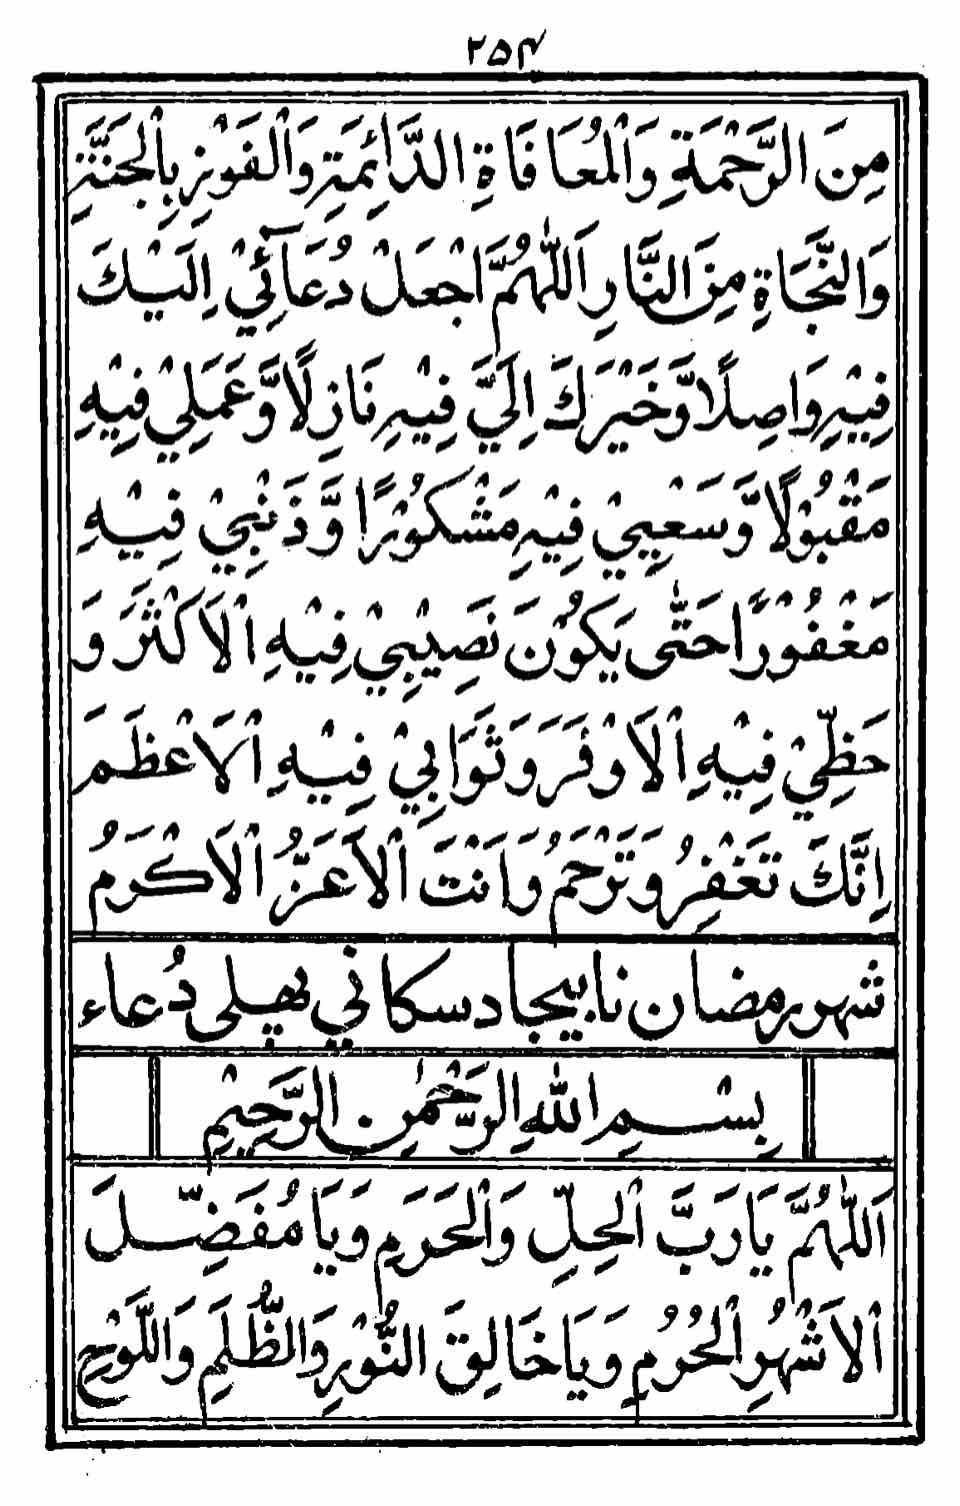 ۲۵۴
مِنَ الرَّحْمَةِ وَالْمُعَافَاةِ الدَّائِمَةِ وَالْفَوْزِ بِالْجَنَّةِ
وَالنَّجَاةِ مِنَ النَّارِ اَللّٰهُمَّ اجْعَلْ دُعَآئِيْ اِلَيْكَ
فِيْهِ وَاصِلًا وَّخَيْرَكَ اِلَيَّ فِيْهِ نَازِلًا وَّعَمَلِيْ فِيْهِ
مَقْبُوْلًا وَّسَعْيِيْ فِيْهِ مَشْكُوْرًا وَّذَنْبِيْ فِيْهِ
مَغْفُوْرًا حَتّٰى يَكُوْنَ نَصِيْبِيْ فِيْهِ الْاَكْثَرَ وَ
حَظِّيْ فِيْهِ الْاَوْفَرَ وَثَوَابِيْ فِيْهِ الْاَعْظَمَ
اِنَّكَ تَغْفِرُ وَتَرْحَمُ وَاَنْتَ الْاَعَزُّ الْاَكْرَمُ
شهر رمضان نا بيجا دسكا ني پهلي دُعاء
بِسْمِ اللهِ الرَّحْمٰنِ الرَّحِيْمِ
اَللّٰهُمَّ يَا رَبَّ الْحِلِّ وَالْحَرَمِ وَيَا مُفَضِّلَ
الْاَشْهُرِ الْحُرُمِ وَيَا خَالِقَ النُّوْرِ وَالظُّلَمِ وَاللَّوْحِ